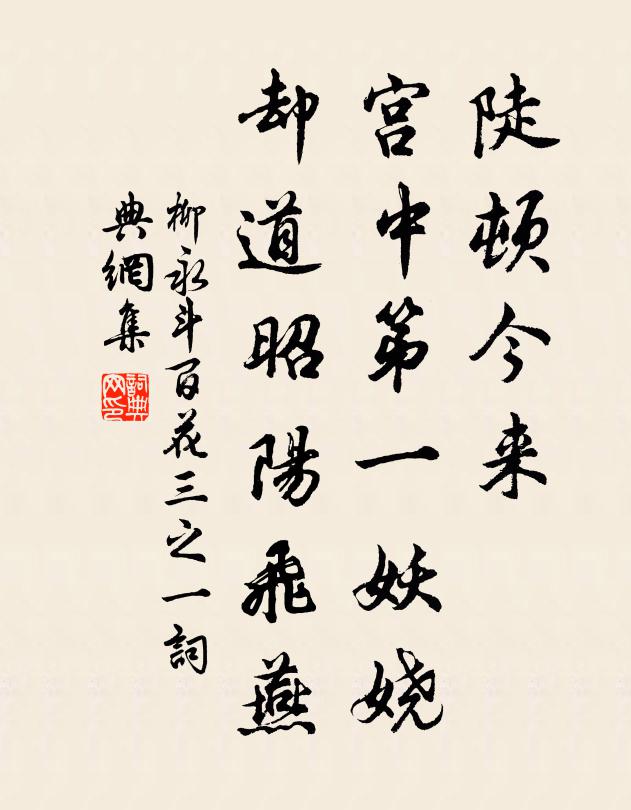 陡顿今来
宫中第一妖娆
却道昭陽飛燕
柳永斗百花三之一詞
典網集
詞典网印